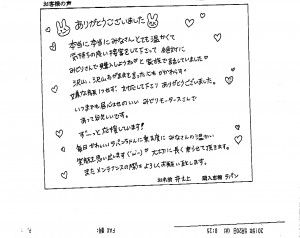 お客様の声
ありがとうございました
本当に本当にみなさん、とても温かくて
気持ちの良い接客をして下さって 絶対に
みどりさんで購入しようねが と家族で話していました
沢山、沢山 わがままを言ったにも かかわらず
嫌な顔1つせず、対応して下さり ありがとうございました。
いつまでも居心地のいい みどりモータースさんで
あって欲しいです。
ずーっと応援しています!
毎日かわいいラパンちゃんに乗る度に みなさんの温かい
笑顔を思い出します(´ω`) 大切に長く乗らせて頂きます。
またメンテナンスの際は よろしくお願い致します。
お名前 井上 購入車種 ラパン